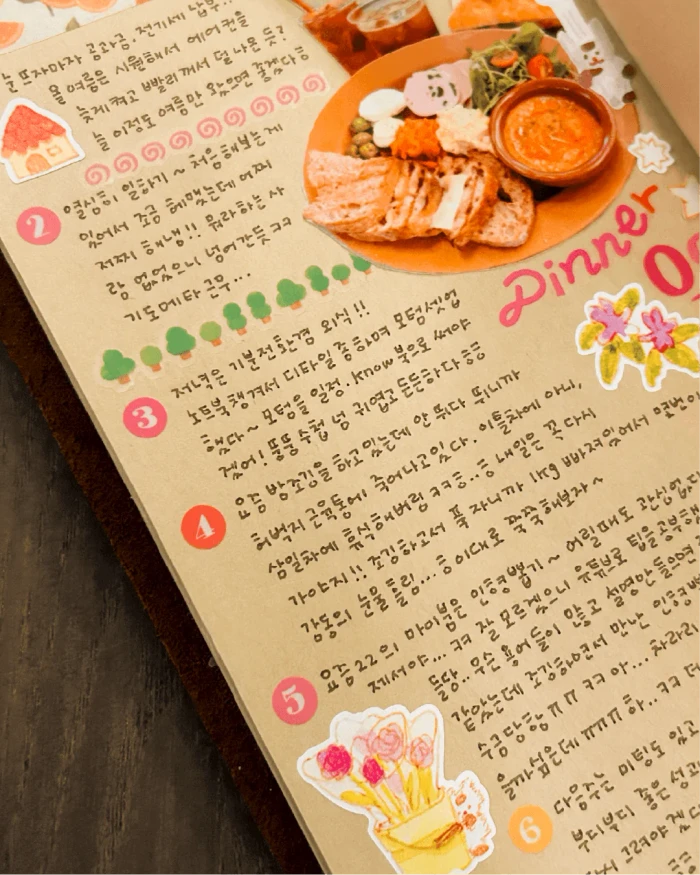 눈뜨자마자 공과금, 전기세 납부..
올 여름은 시원해서 에어컨을
늦게켜고 빨리꺼서 덜 나온 듯?
늘 이정도 여름만 왔으면 좋겠다ㅎ
2 열심히 일하기 ~ 처음해보는게
있어서 조금 헤맸는데 어찌
저찌 해냄!! 뭐라하는 사
람 없었으니 넘어간듯 ㅋㅋ
기도메타 근무...
Dinner
3 저녁은 기분전환겸 외식!!
노트북챙겨서 디타일종하며 모텀셋업
했다~ 모텀을 일정. Know 북으로 써야
겠어! 뚱뚱수첩 넘 귀엽고 든든하다 ㅎㅎ
4 요즘 밤조깅을 하고있는데 안 뛰다 뛰니까
허벅지 근육통에 죽어나고있다. 이틀차에 아니,
삼일차에 휴식해버림 ㅋㅋㅎ..ㅎ 내일은 꼭 다시
가야지!! 조깅하고서 푹 자니까 1kg 빠져있어서
감동의 눈물흘림...ㅎ 이대로 쭉쭉해보자~
5 요즘 22의 마이붐은 인형뽑기 ~ 어릴때도 관심없
제서야... ㅋㅋ 잘 모르겠으니 유튜브로 팁을공부
들당.. 무슨용어들이 많고 설명만들으면
같았는데 조깅하면서 만난 인형
수금당함 ㅠㅠ ㅋㅋ 아... 차라리
을까싶은데 ㅠㅠㅠ 하.. ㅋㅋ
6 다음주는 미팅도 있고
부디부디 좋은 성과
그려야겠다